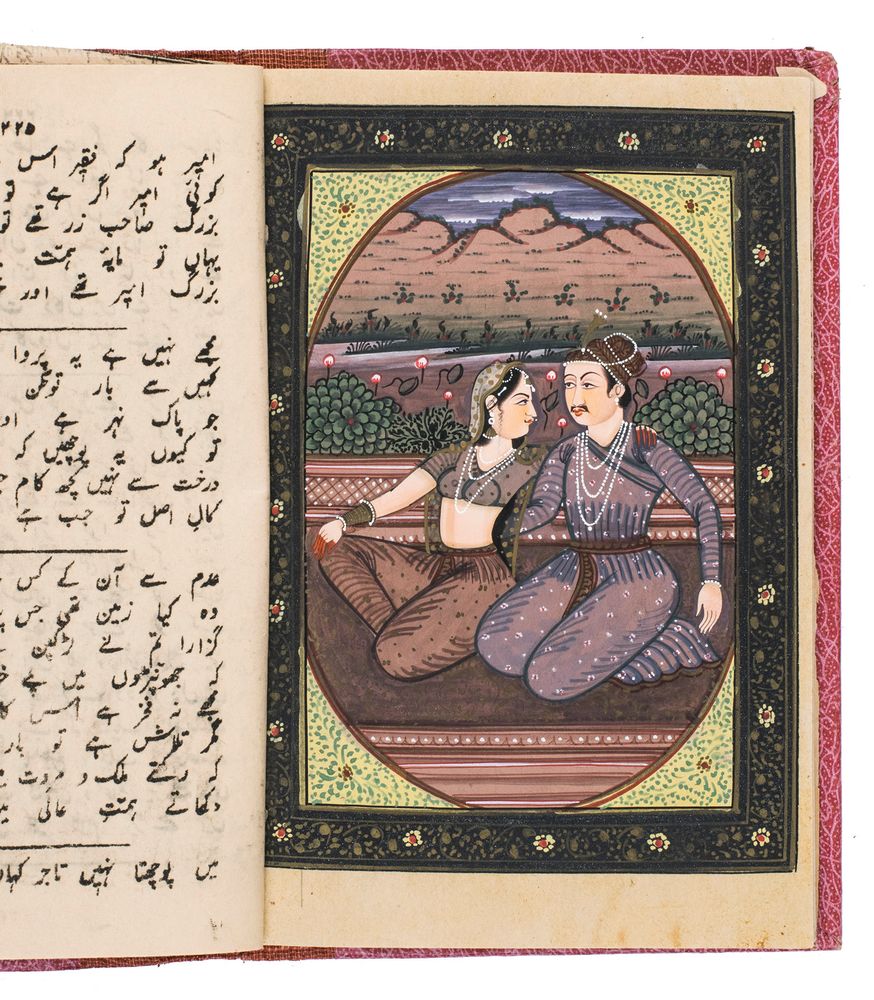 ۲۲۵
امیر ہو کہ فقیر اس
کوئی امیر اگر ہے تو
بزرگ صاحب زر تھے تو
یہاں تو مایۂ ہمت
بزرگ امیر تھے اور
مجھے نہیں ہے یہ پروا
کہیں سے بار توطن
جو پاک نہر ہے
تو کیوں یہ پوچھیں کہ
درخت سے نہیں کچھ کام
کمالِ اصل تو جب ہے
عدم سے آن کے کس
وہ کیا زمین تھی جس
گزارا تم نے لڑکپن
کہ جھونپڑوں میں ہے
مجھے نہ فخر ہے
مگر تلاش ہے تو
کہ رکھتے و مروت
دکھاتے ہمتِ عالی
میں پوچھتا نہیں تاجر کہاں